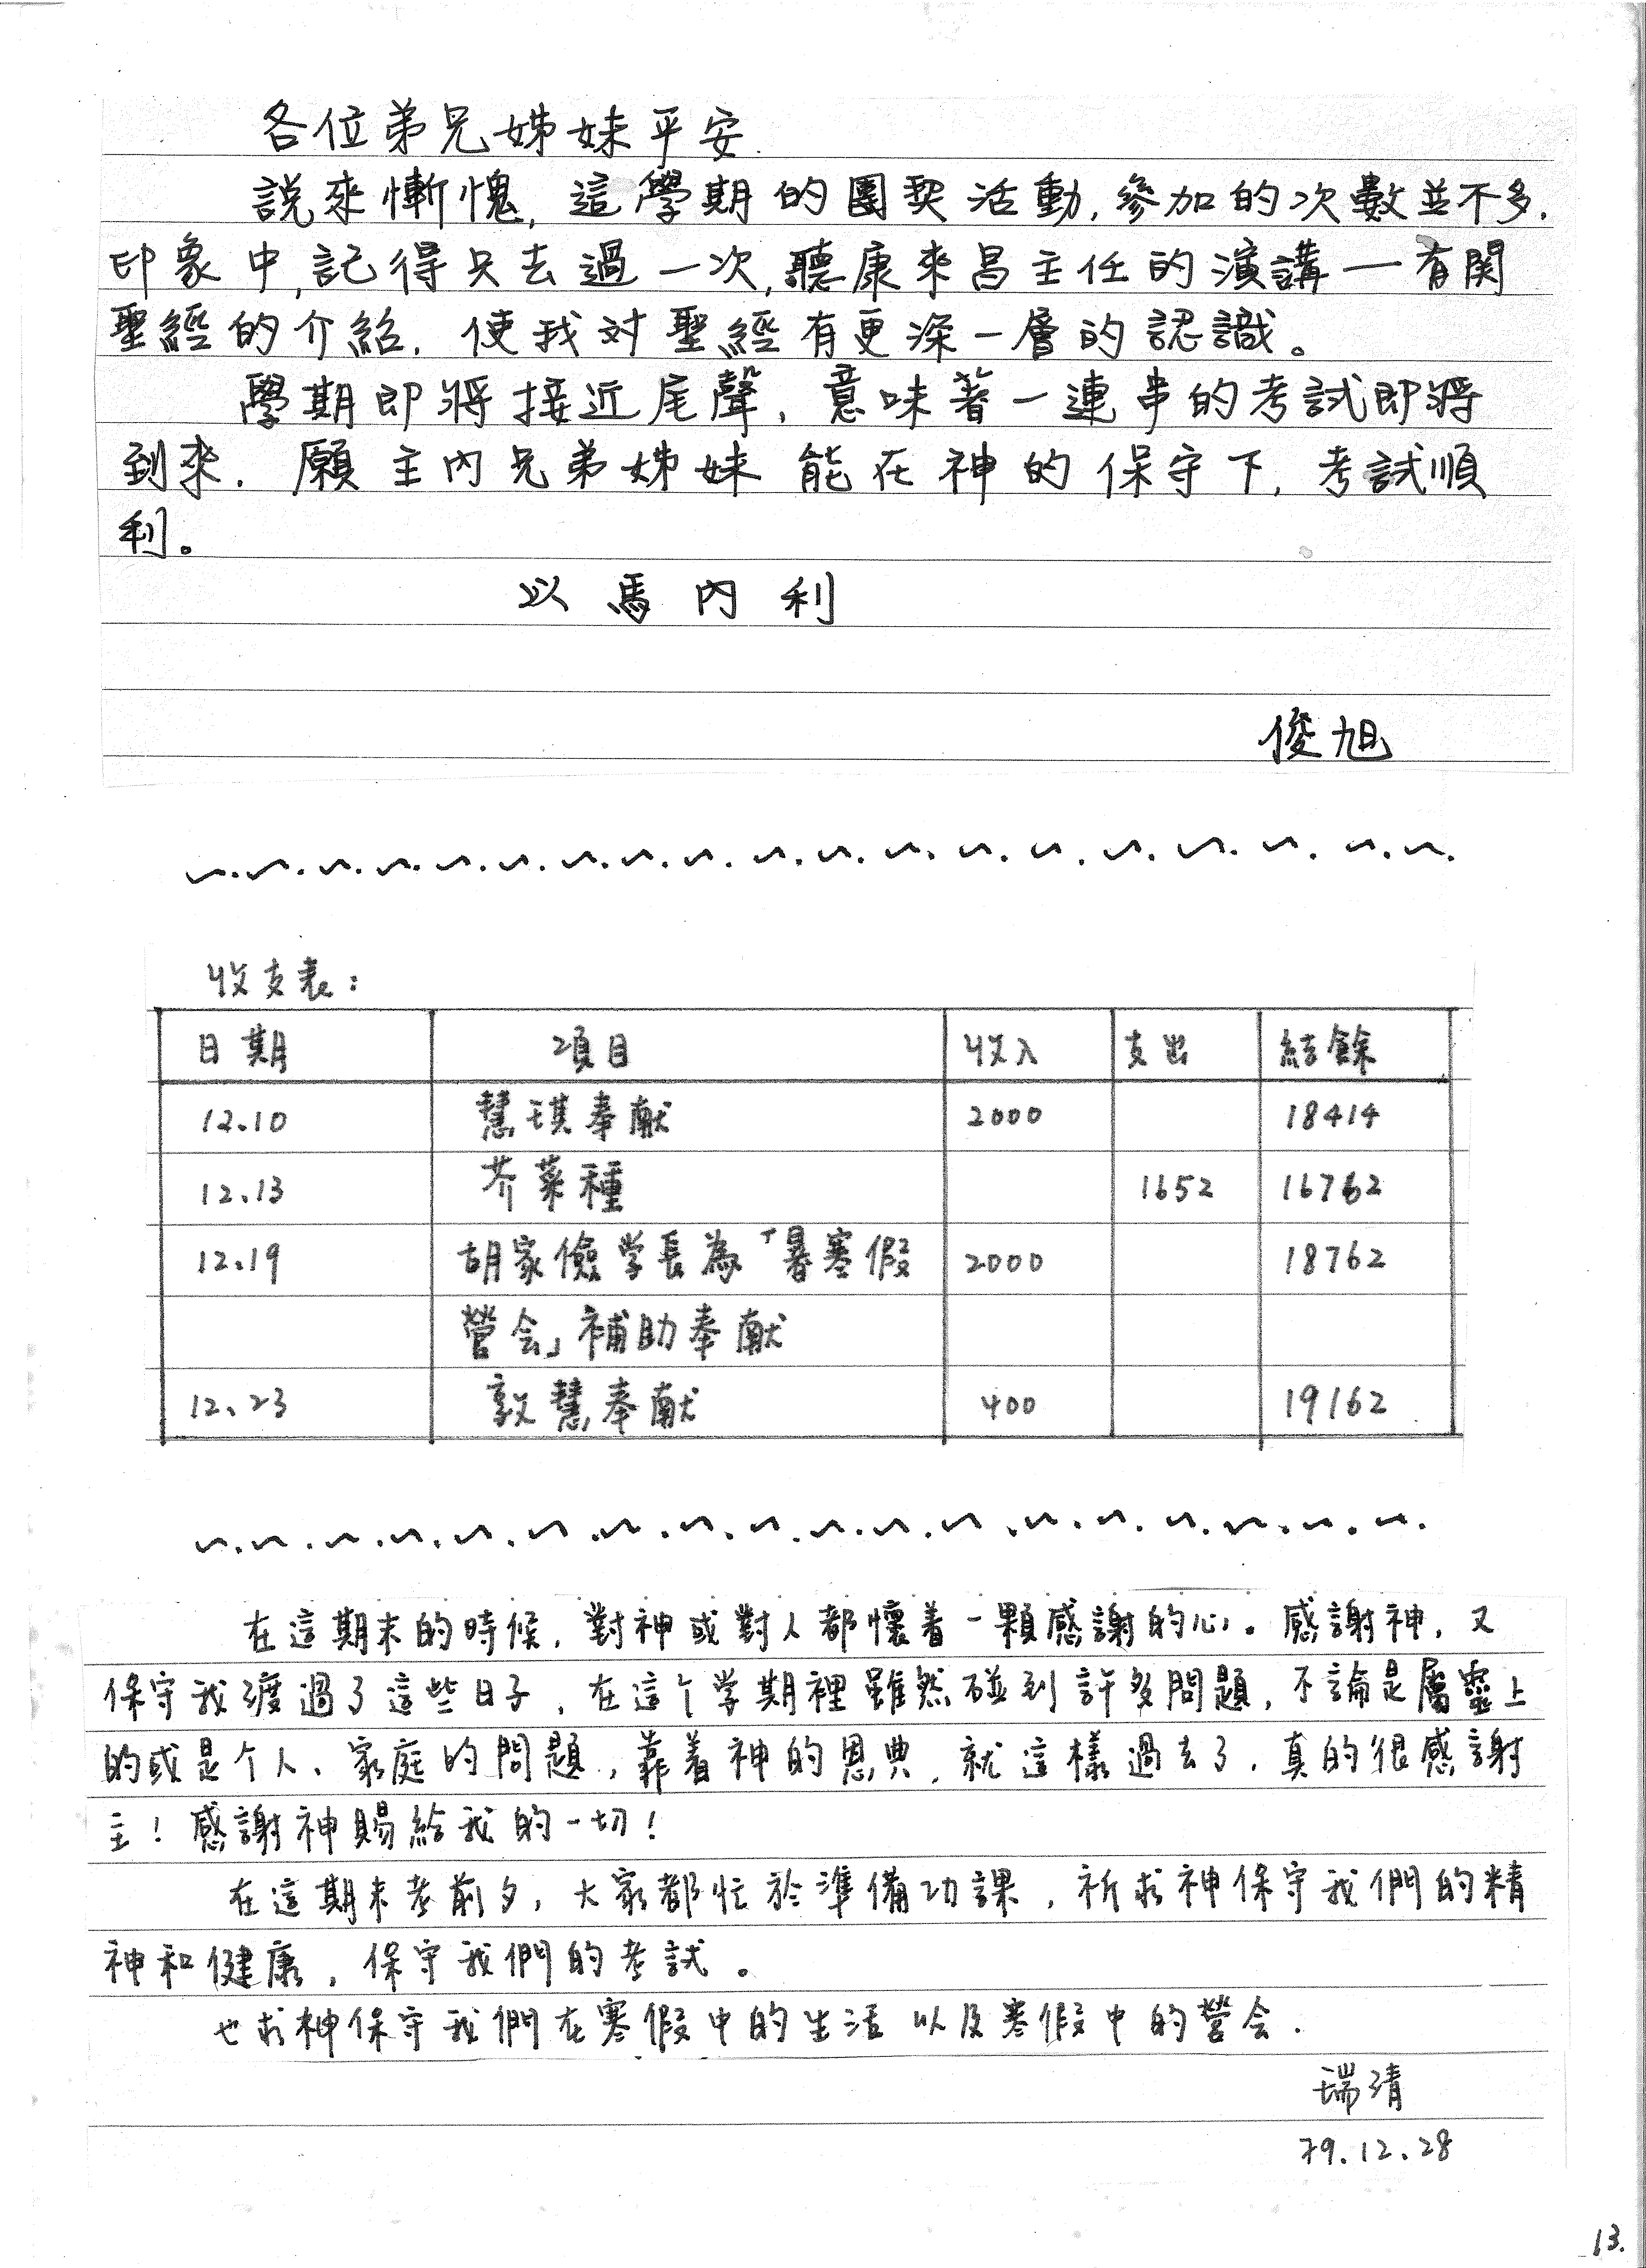 各位弟兄姊妹平安.
說來慚愧,這學期的團契活動,參加的次數並不多.
印象中,記得只去過一次,聽康來昌主任的演講一有関
聖經的介紹.使我对聖經有更深一層的認識。
學期即將接近尾聲,意味著一連串的考試即將
到來.願主內兄弟姊妹能在神的保守下,考試順
利。
以馬內利
俊旭
收支表:
日期 項目 收入 支出 結餘
12.10 慧琪奉献 2000 18414
12.13 芥菜種 1652 16762
12.19 胡家儉学長為「暑寒假 2000 18762
營会」補助奉献
12.23 敦慧奉献 400 19162
在這期末的時候,對神或對人都懷着一顆感謝的心。感謝神,又
保守我渡過了這些日子,在這个学期裡雖然碰到許多問題,不論是屬靈上
的或是个人、家庭的問題,靠着神的恩典,就這樣過去了,真的很感謝
主!感謝神賜給我的一切!
在這期末考前夕,大家都忙於準備功課,祈求神保守我們的精
神和健康,保守我們的考試。
也求神保守我們在寒假中的生活以及寒假中的營会.
瑞清
79.12.28
13.